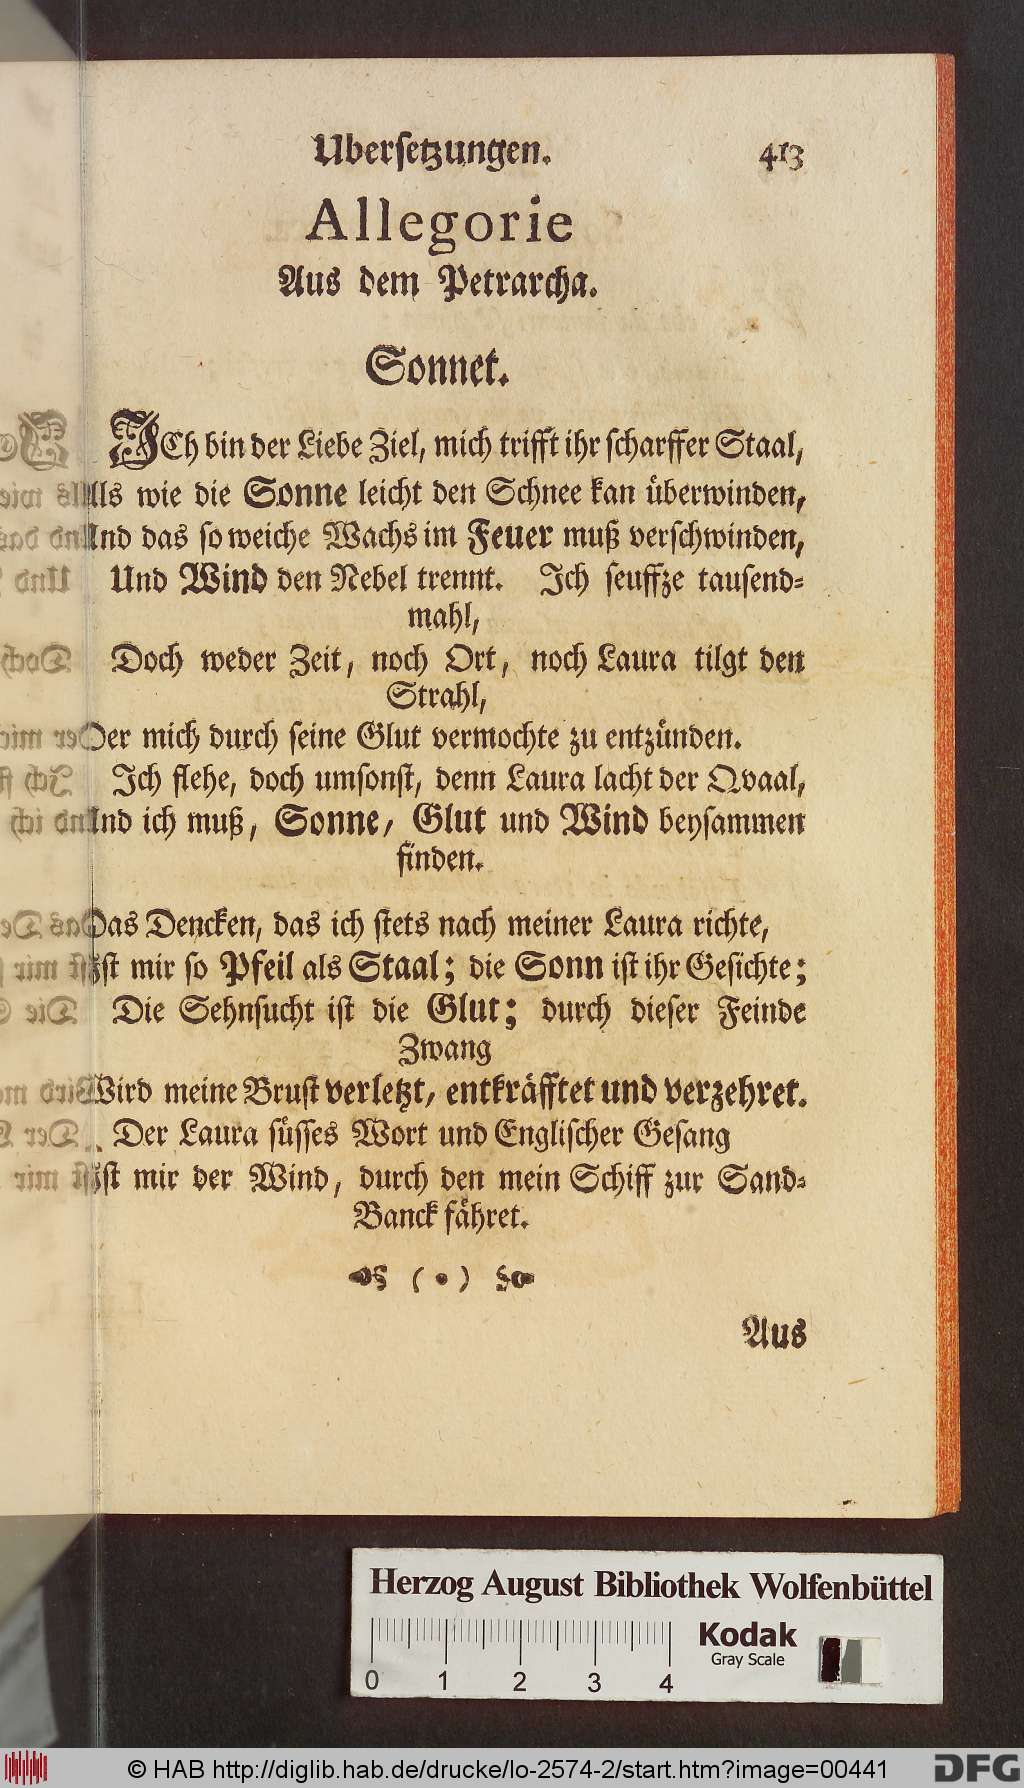 Ubersetzungen. 413
Allegorie
Aus dem Petrarcha.
Sonnet.
ICh bin der Liebe Ziel, mich trifft ihr scharffer Staal,
Als wie die Sonne leicht den Schnee kan überwinden,
Und das so weiche Wachs im Feuer muß verschwinden,
Und Wind den Nebel trennt. Ich seuffze tausend-
mahl,
Doch weder Zeit, noch Ort, noch Laura tilgt den
Strahl,
Der mich durch seine Glut vermochte zu entzünden.
Ich flehe, doch umsonst, denn Laura lacht der Qvaal,
Und ich muß, Sonne, Glut und Wind beysammen
finden.
Das Dencken, das ich stets nach meiner Laura richte,
Ist mir so Pfeil als Staal; die Sonn ist ihr Gesichte;
Die Sehnsucht ist die Glut; durch dieser Feinde
Zwang
Wird meine Brust verletzt, entkräfftet und verzehret.
Der Laura süsses Wort und Englischer Gesang
Ist mir der Wind, durch den mein Schiff zur Sand-
Banck fähret.
( • )
Aus
Herzog August Bibliothek Wolfenbüttel
Kodak
Gray Scale
0 1 2 3 4
© HAB http://diglib.hab.de/drucke/lo-2574-2/start.htm?image=00441
DFG